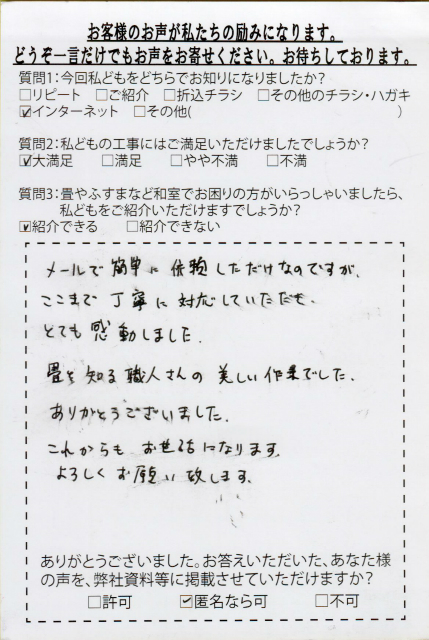 お客様のお声が私たちの励みになります。
どうぞ一言だけでもお声をお寄せください。お待ちしております。
質問1：今回私どもをどちらでお知りになりましたか？
□リピート □ご紹介 □折込チラシ □その他のチラシ・ハガキ
☑インターネット □その他( )
質問2：私どもの工事にはご満足いただけましたでしょうか？
☑大満足 □満足 □やや不満 □不満
質問3：畳やふすまなど和室でお困りの方がいらっしゃいましたら、
私どもをご紹介いただけますでしょうか？
☑紹介できる □紹介できない
メールで簡単に依頼しただけなのですが、
ここまで丁寧に対応していただき、
とても感動しました。
畳を知る職人さんの美しい作業でした。
ありがとうございました。
これからもお世話になります。
よろしくお願い致します。
ありがとうございました。お答えいただいた、あなた様
の声を、弊社資料等に掲載させていただけますか？
□許可 ☑匿名なら可 □不可